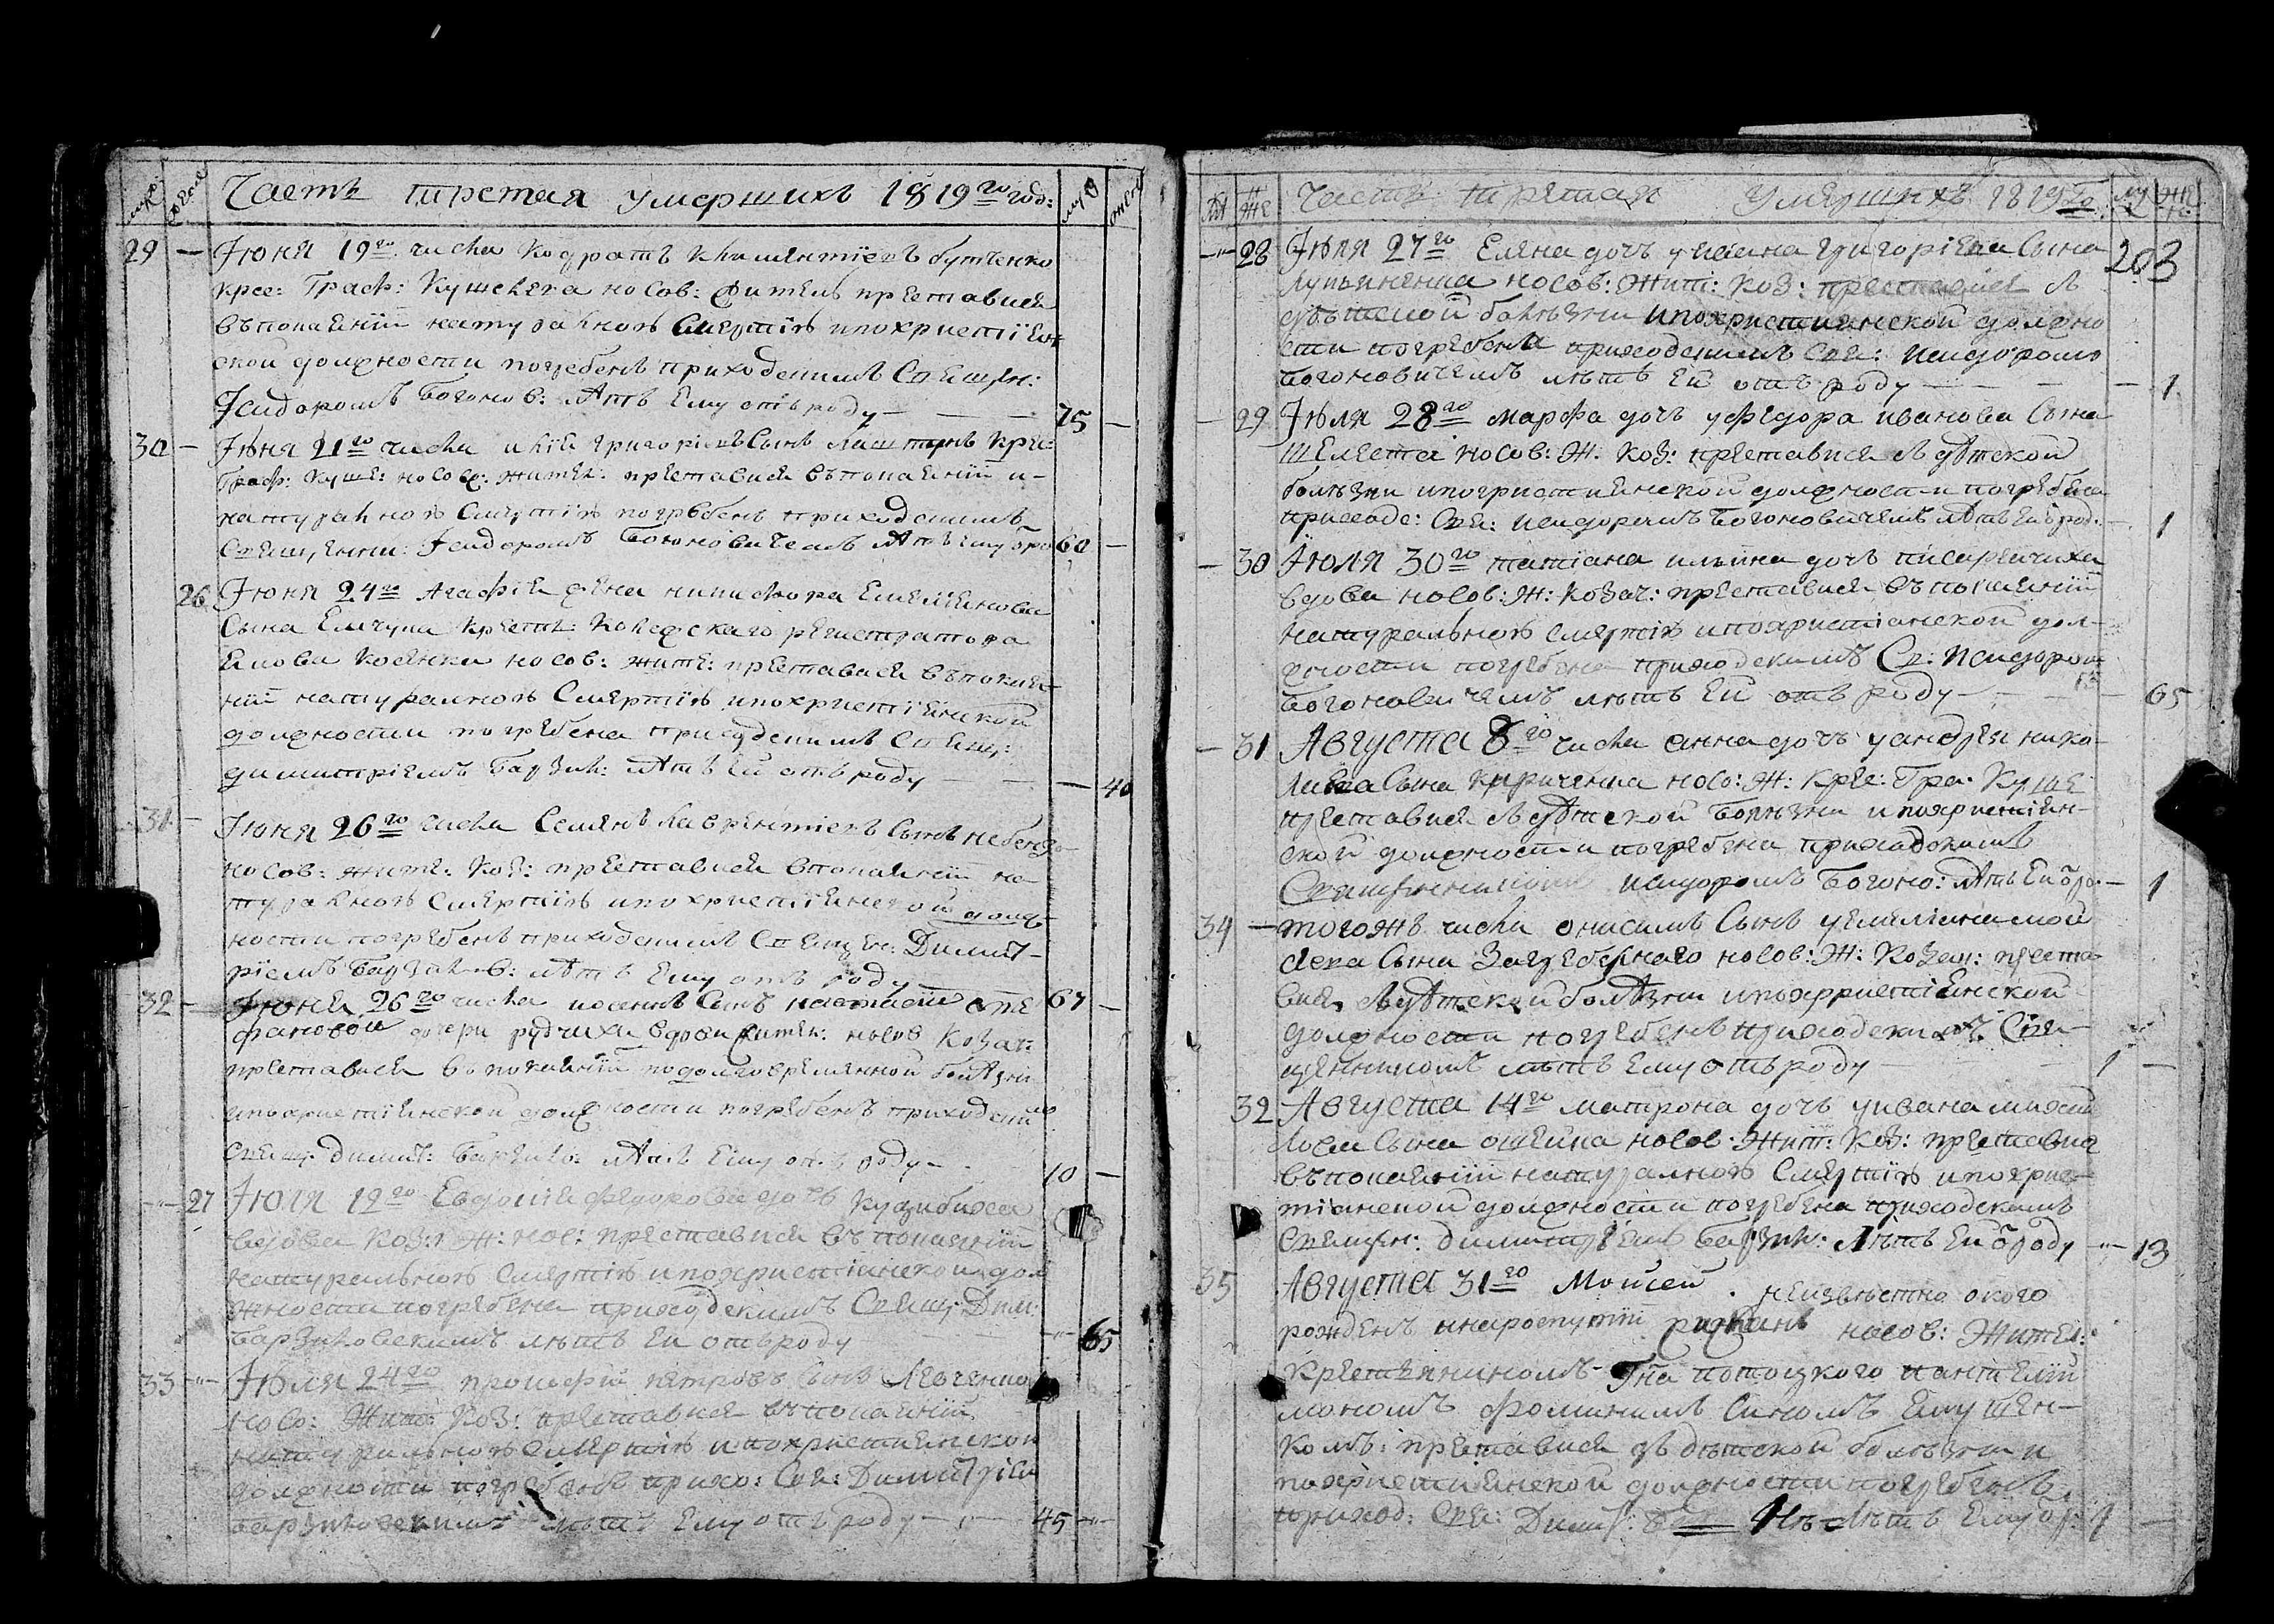 муже женска Часть третая умершихъ 1819го год: муж женс
29 — Іюня 19го числа Кодратъ Климентіевъ бутченко
крес: Граф: Кушелева носов: житель преставися
въ покаяніи натуралною смертію и по христіян
ской должности погребенъ приходскимъ Священ:
Ісидоромъ Богонов: лѣтъ Ему отъ роду — 75 —
30 — Іюня 21го числа Григоріевъ Сынъ крес:
Граф: Куше: носов: жител: преставися въ покаяніи и
натуралною смертію погребенъ приходскимъ
Священни: Ісидоромъ Богоновичемъ лѣтъ ему о ро 60 —
26 Іюня 24го Агафія жена никифора Емеліянова
Сына Емчука крестя: Колежскаго регистратора
носов: жите: преставися въ покая
ніи натуралною Смертію и по христіянской
должности погребена приходскимъ Свящ:
димитріемъ Барзик: лѣтъ Ей отъ роду — — 40
31 — Іюня 26го числа Семенъ лаврентіевъ Сынъ
носов: жите: Коз: преставися в покаяніи на
туралною Смертію и по христіянской долж
ности погребенъ приходскимъ Священ: Димит
ріемъ Барзик: лѣтъ Ему отъ роду 67 —
32 — Іюня 26го числа Сынъ настасіи Сте
фановой дочери рудчихи вдови жител: носов Козач:
преставися в покаяніи по долговременной болѣзни
и по христіянской должности погребенъ приходским
Свящ: димит: Барзико: лѣтъ Ему отъ роду 10 —
—"— 27 Іюля 12го Евдокія федорова дочъ
вдова Коз: Ж: нос: преставися въ покаяніи
натуральною смертію и по христіянской дол
жности погребена приходскимъ Свящ: Дим:
Барзиковскимъ лѣтъ Ей отъ роду —"— 65
33 —"— Іюля 24го прокофій петровъ Сынъ Левченко
носо: Жит: Коз: преставися въ покаяніи
натуральною смертію и по христіянской
должности погребенъ прихо: Свя: Димитріем
барзиковскимъ лѣтъ Ему отъ роду — 45 —"—
М Же Часть третая Умершихъ 1819го Му Же
—"— 28 Іюля 27го Елена дочъ Григоріева Сына
Лупиненка носов: Жит: Коз: преставися
дѣтской болѣзни и по христіянской должно
сти погребена приходскимъ Свя: Исидоромъ
Богоновичемъ лѣтъ Ей отъ роду — — 1
203
— 29 Іюля 28го марфа дочъ у федора иванова Сына
Шелеста носов: Ж. Коз: преставися дѣтской
болѣзни и по христіянской должности погребена
приходс: Свя: Исидоромъ Богоновичемъ лѣтъ Ей о род: — 1
— 30 Іюля 30го татіана ильина дочъ писаренчиха
вдова носов: Ж: Козач: преставися въ покаяніи
натуральною смертію и по христіанской дол
жности погребена приходскимъ Св: Исидором
Богоновичемъ лѣтъ Ей отъ роду — — 65
— 31 Августа 8го числа анна дочъ у андрея нико
лаева Сына Кириченка носо: Ж: Кре: Гра: Куше
преставися дѣтской болѣзни и по христіян
ской должности погребена приходскимъ
Священникомъ Исидоромъ Богоно: лѣтъ Ей о ро: — 1
34 — тогожъ числа онисимъ Сынъ у емеліана мой
сеева Сына Загребелного носов: Ж: Козац: преста
вися дѣтской болѣзни и по христіянской
должности погребенъ приходскимъ Свя
щенникомъ лѣтъ Ему отъ роду — 1 —
32 Августа 14го матрона дочъ у ивана михай
лова Сына носов: Жит: Коз: преставися
въ покаяніи натуралною Смертію и по хрис
тіанской должности погребена приходскимъ
Священ: димитріемъ Барзик: лѣтъ Ей о роду —"— 13
35 Августа 31го Моисей неизвѣстно окого
рожденъ носов: Жител:
Крестянином Гна потоцкого пантелий
мономъ фоминимъ Синомъ
комъ: преставися дѣтской болѣзни и
по христіянской должности погребенъ
приход: Свя: Димит: лѣтъ Ему о р: 1 —